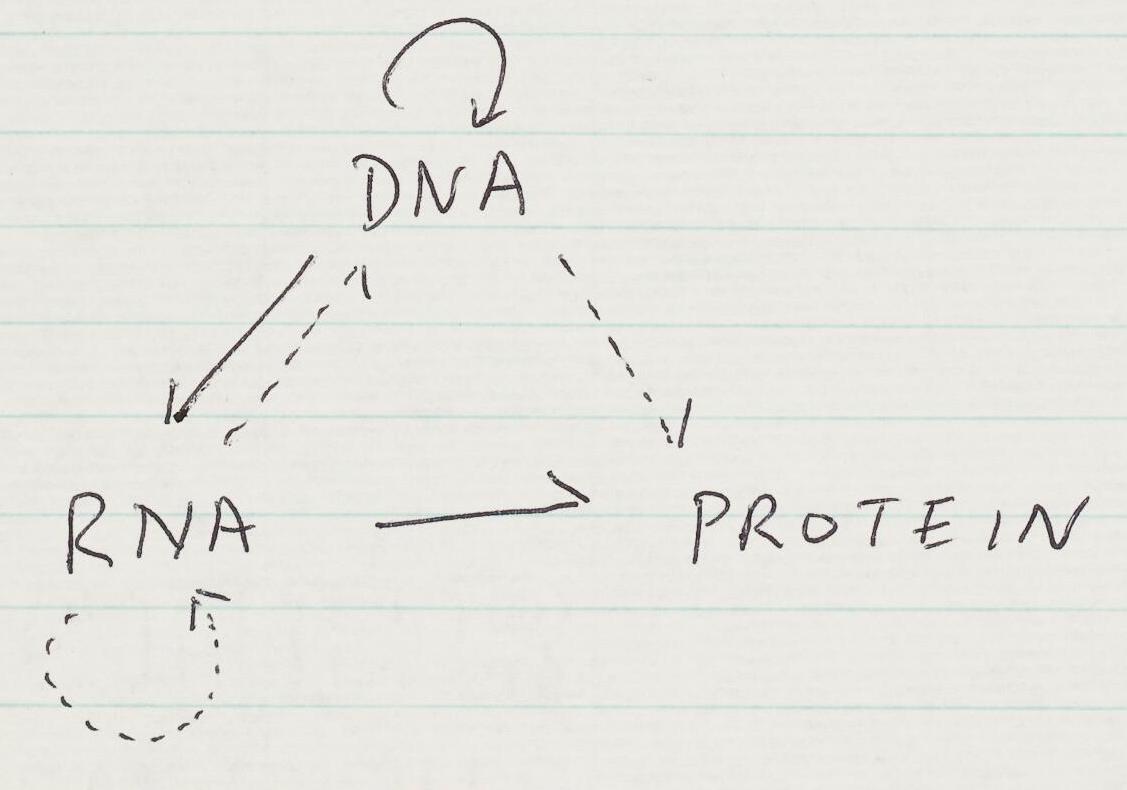 DNA
RNA PROTEIN